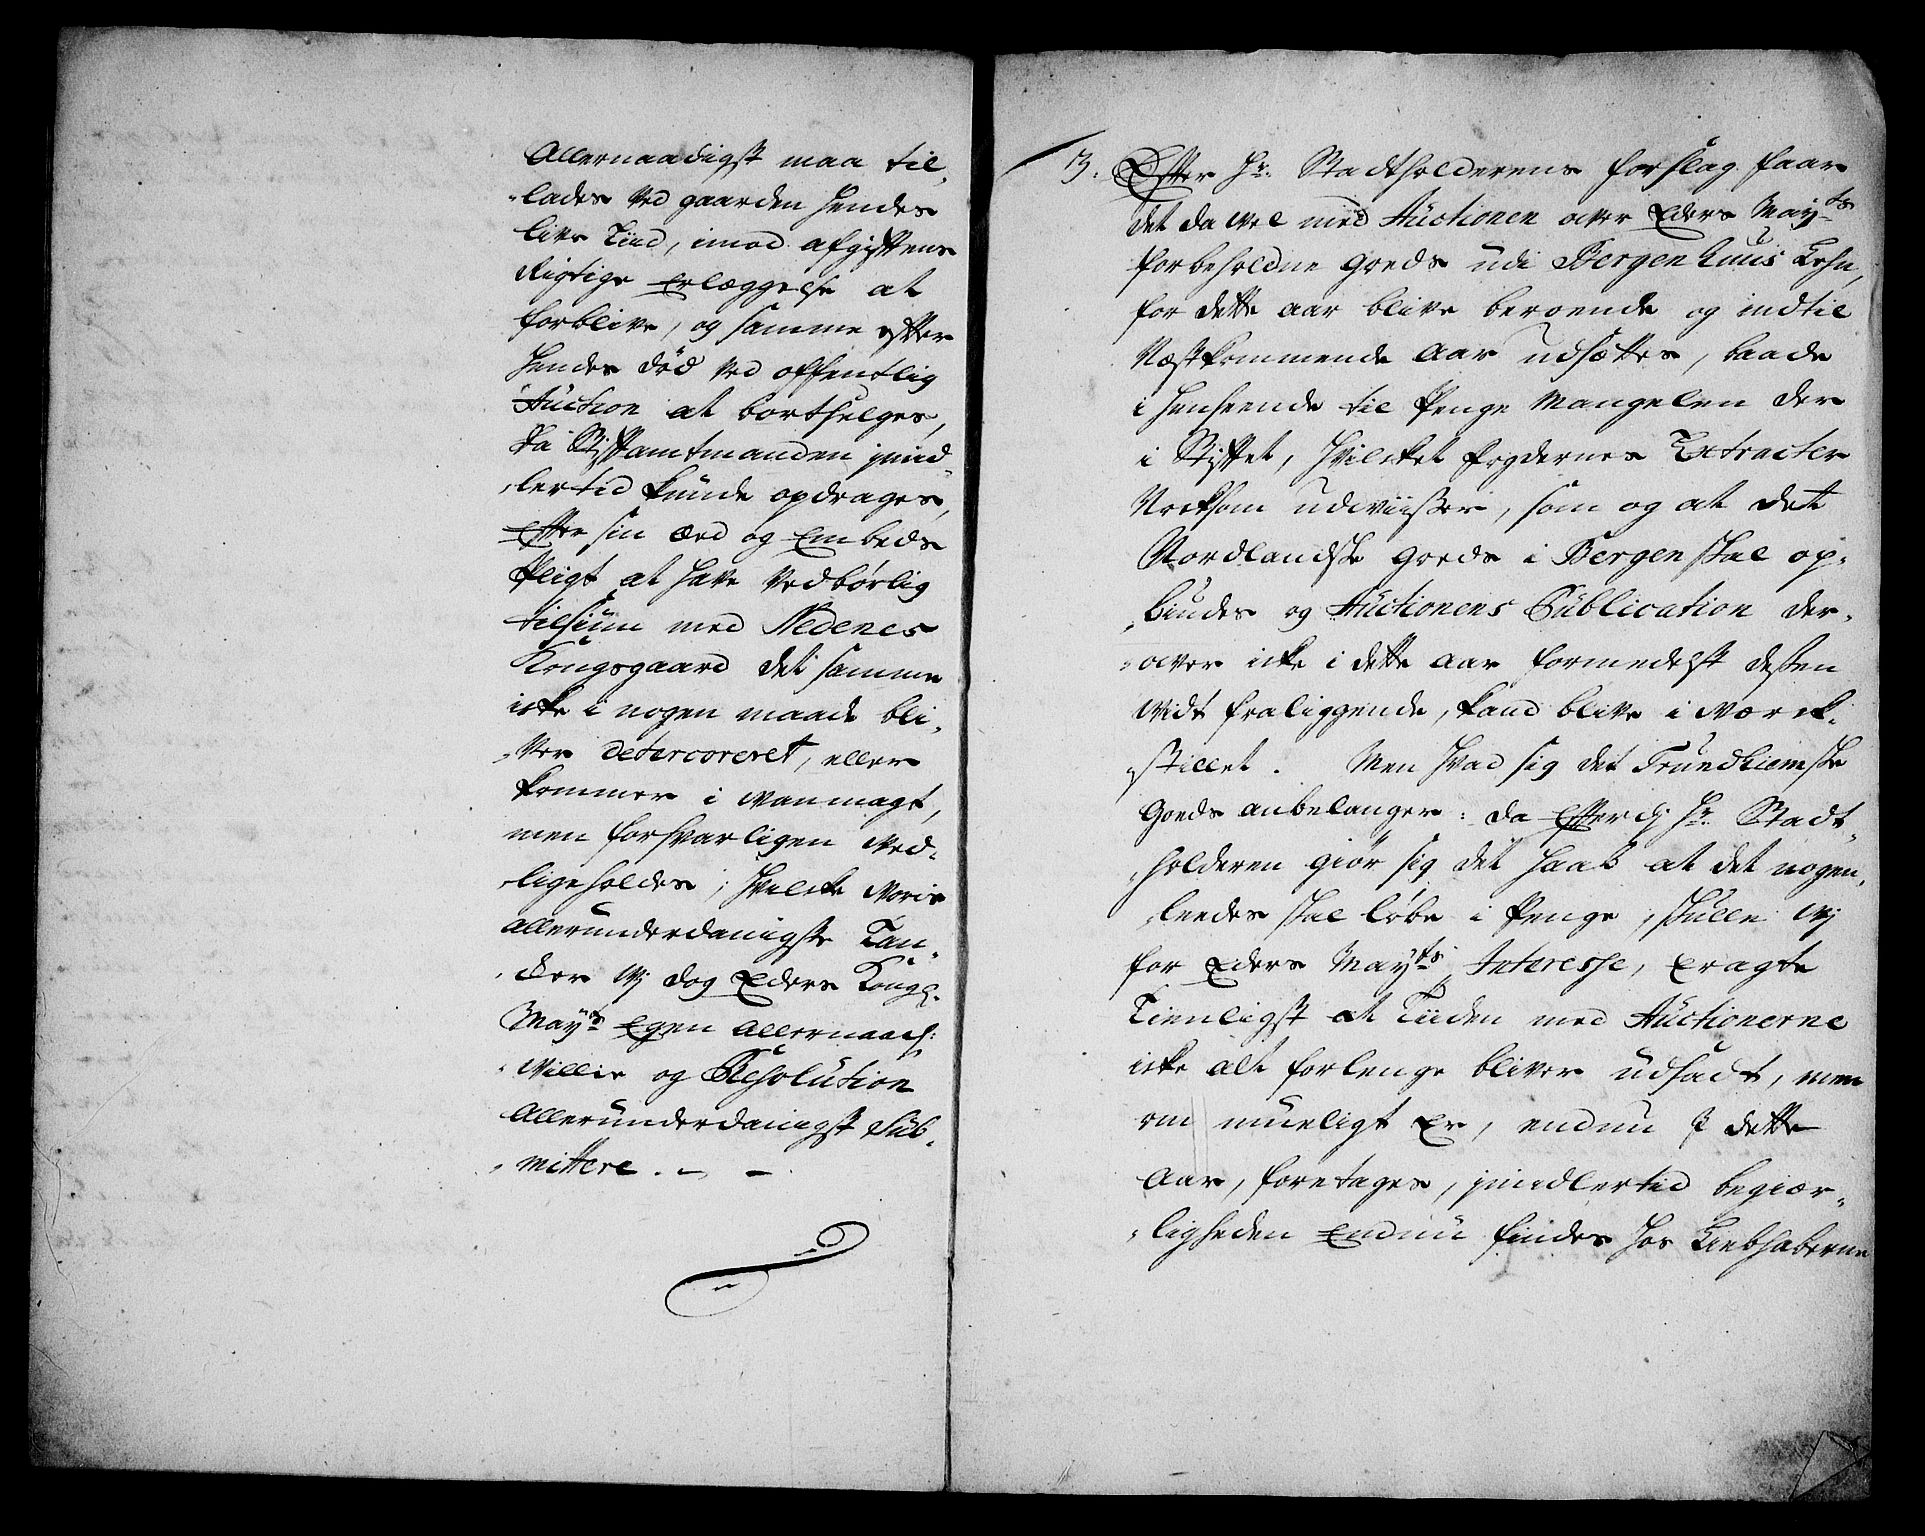 Allernaadigst maa til„
„lades ved gaarden hendes
livs Tiid, imod afgiftens
Rigtige Erlæggelse at
forblive, og samme efter
hendes död ved offentlig
Auction at bortselges,
da Stiftamtmanden imid„
„lertid kunde opdrages,
Efter sin Æed og Embeds
Pligt at have Vedbørlig
tilsiun med Nedenes
Kongsgaard det samme
icke i nogen maade bli„
„ver detercoreret, eller
kommer i vanmagt,
men forsvarligen ved„
„ligeholdes; hvilcke voris
allerunderdanigste Tan„
„cker vj dog Eders Kongl:
Mayts Egen allernaad:
Villie og Resolution
allerunderdanigst Sub„
„mittere. — —
3. Efter Hr: Stadtholderens forslag faar
det da vel med Auctionen over Eders Mayts
forbeholdne Goeds udi Bergenhuus Lehn,
for dette aar blive beroende og indtil
Næstkommende Aar udsættes, baade
i henseende til Penge Mangelen der
i Stiftet, hvilcket fogdernes Extracter
Nocksom udviisser, som og at det
Nordlandske Goeds i Bergen skal op„
„biudes og Auctionens Publication der„
„over icke i dette aar formedelst dessen
vidt fraliggende, kand blive i værck„
„stillet. Men hvad sig det Trundhiemske
Goeds anbelanger: da Efterdj Hr: Stadt„
„holderen giör sig det haab at det nogen„
„leedes skal løbe i Penge, skulle vj
for Eders Mayts Interesse, Eragte
Tienligst at Tiiden med Auctionerne
icke alt forlenge bliver udsadt, men
om mueligt Er, endnu i dette
Aar, foretages, imidlertid begiær„
„ligheden Endnu findes hos Liebhaberne